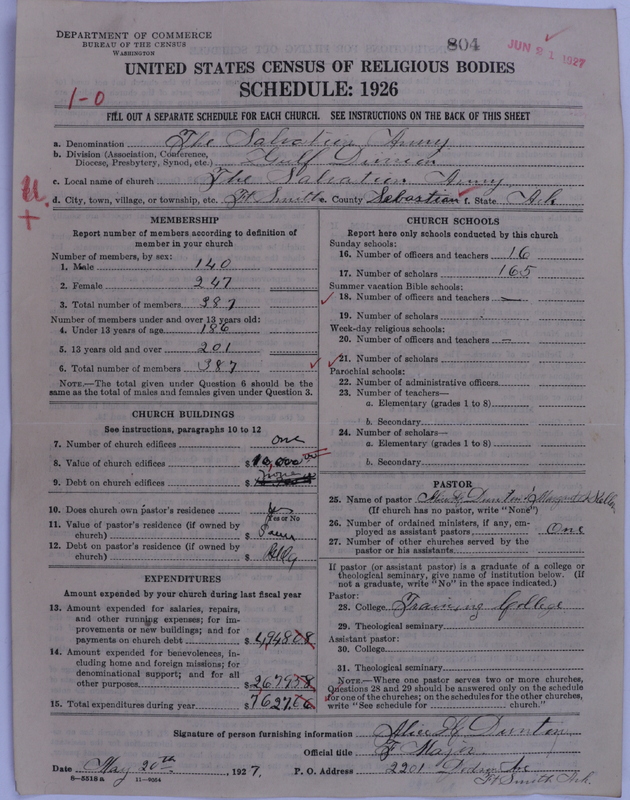 DEPARTMENT OF COMMERCE
BUREAU OF THE CENSUS
WASHINGTON
804
JUN 21 1927
UNITED STATES CENSUS OF RELIGIOUS BODIES
SCHEDULE: 1926
1-0
FILL OUT A SEPARATE SCHEDULE FOR EACH CHURCH. SEE INSTRUCTIONS ON THE BACK OF THIS SHEET
a. Denomination The Salvation Army
b. Division (Association, Conference, Diocese, Presbytery, Synod, etc.) Gulf Division
c. Local name of church The Salvation Army
d. City, town, village, or township, etc. Ft Smith e. County Sebastian f. State Ark
MEMBERSHIP
Report number of members according to definition of
member in your church
Number of members, by sex:
1. Male 140
2. Female 247
3. Total number of members 387
Number of members under and over 13 years old:
4. Under 13 years of age 186
5. 13 years old and over 201
6. Total number of members 387
NOTE.—The total given under Question 6 should be
same as the total of males and females given under Question 3.
CHURCH BUILDINGS
See instructions, paragraphs 10 to 12
7. Number of church edifices one
8. Value of church edifices $ 10,000
9. Debt on church edifices $ None
10. Does church own pastor's residence
Yes or No
11. Value of pastor's residence (if owned by
church) $
12. Debt on pastor's residence (if owned by
church) $
EXPENDITURES
Amount expended by your church during last fiscal year
13. Amount expended for salaries, repairs,
and other running expenses; for im-
provements or new buildings; and for
payments on church debt $ 4948.08
14. Amount expended for benevolences, in-
cluding home and foreign missions; for
denominational support; and for all
other purposes $ 2679.58
15. Total expenditures during year $ 7627.66
CHURCH SCHOOLS
Report here only schools conducted by this church
Sunday schools:
16. Number of officers and teachers 16
17. Number of scholars 165
Summer vacation Bible schools:
18. Number of officers and teachers —
19. Number of scholars
Week-day religious schools:
20. Number of officers and teachers —
21. Number of scholars
Parochial schools:
22. Number of administrative officers
23. Number of teachers—
a. Elementary (grades 1 to 8)
b. Secondary
24. Number of scholars—
a. Elementary (grades 1 to 8)
b. Secondary
PASTOR
25. Name of pastor Alice H Dunton & Margaret
(If church has no pastor, write "None")
26. Number of ordained ministers, if any, em-
ployed as assistant pastors One
27. Number of other churches served by the
pastor or his assistants
If pastor (or assistant pastor) is a graduate of a college or
theological seminary, give name of institution below. (If
not a graduate, write "No" in the space indicated.)
Pastor:
28. College Training College
29. Theological seminary
Assistant pastor:
30. College
31. Theological seminary
NOTE.—Where one pastor serves two or more churches,
Questions 28 and 29 should be answered only on the schedule
for one of the churches; on the schedules for the other churches,
write "See schedule for church."
Signature of person furnishing information Alice H Dunton
Official title
Date May 20th 1927. P. O. Address 2201
Ft Smith Ark.
8-5518a 11-9054